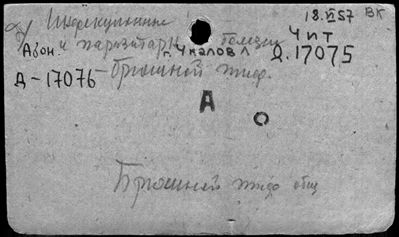 а/ Инфекционные 18.VI 57 ВК
и паразитарн. болезни Чит
Абон. г. Чкалов Л Д.17075
Д-17076 - Брюшной тиф.
А
О
Брюшной тиф общ